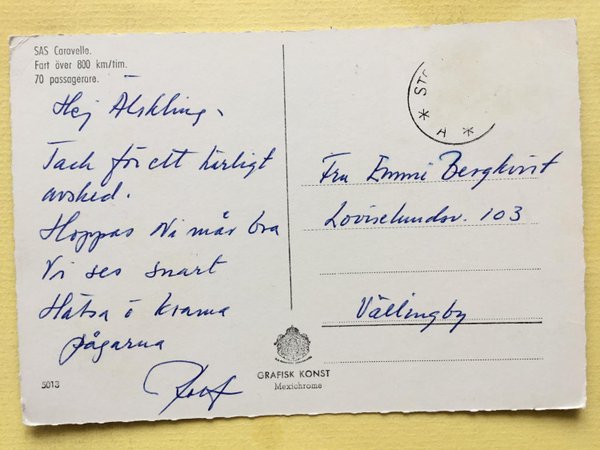 SAS Caravelle.
Fart över 800 km/tim.
70 passagerare.
Hej Älskling,
Tack för ett härligt
avsked.
Hoppas Ni mår bra
Vi ses snart
Hälsa o krama
pågarna
Fru Emmi Bergkvist
Loviselundsv. 103
Vällingby
5013
GRAFISK KONST
Mexichrome
* STO
A *